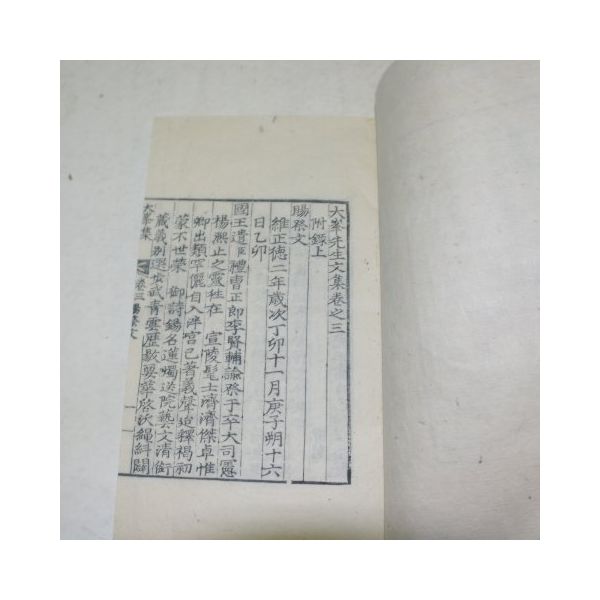 大峯先生文集卷之三
附錄上
賜祭文
維正德二年歲次丁卯十一月庚子朔十六
日乙卯
國王遣臣禮曹正郎李賢輔諭祭于卒大司憲
楊熙止之靈徃在 宣陵髦士濟濟傑卓惟
卿出類罕儷自入泮宮已著義聲迨釋褐初
蒙不世榮 御詩錫名蓮燭送院藝文清銜
藏義別選步武青雲歷敭
大峯集 卷三 賜祭文